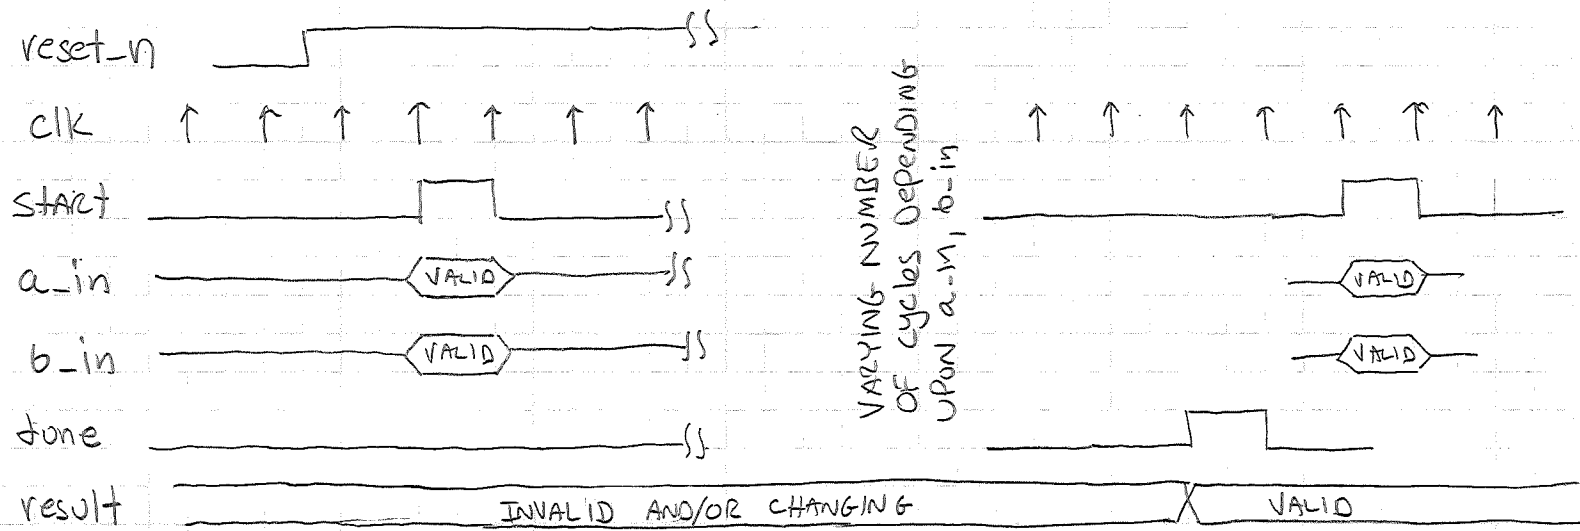 reset_n
clk
start
a_in
VALID
VALID
b_in
VALID
VALID
done
result
INVALID AND/OR CHANGING
VALID
VARYING NUMBER
OF CYCLES DEPENDING
UPON a_in, b_in